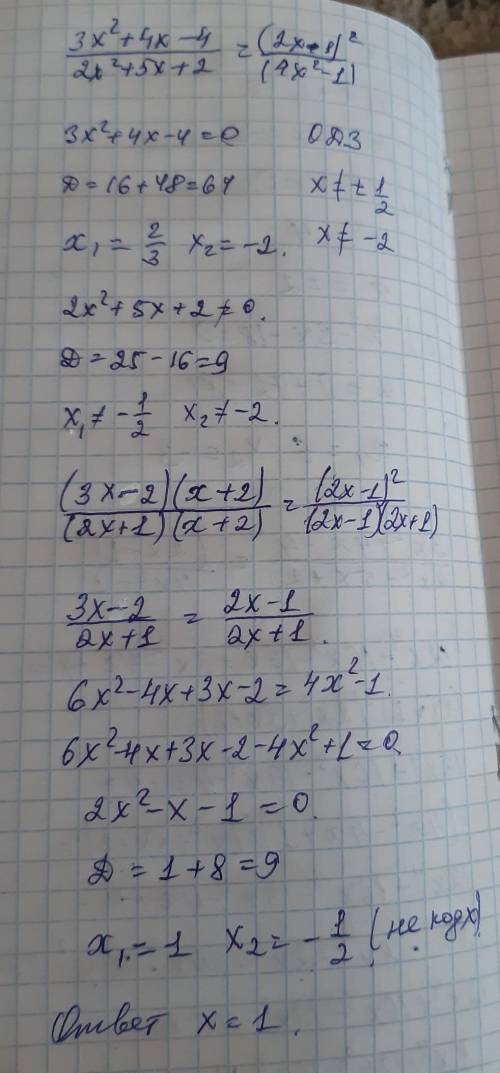 (3x²+4x-4)/(2x²+5x+2) = (2x-1)²/(4x²-1)
3x²+4x-4=0 ОДЗ
D=16+48=64 x≠±1/2
x₁=2/3 x₂=-2. x≠-2
2x²+5x+2≠0.
D=25-16=9
x₁≠-1/2 x₂≠-2.
((3x-2)(x+2))/((2x+1)(x+2)) = (2x-1)²/((2x-1)(2x+1))
(3x-2)/(2x+1) = (2x-1)/(2x+1).
6x²-4x+3x-2=4x²-1.
6x²-4x+3x-2-4x²+1=0
2x²-x-1=0.
D=1+8=9
x₁=1 x₂=-1/2 (не подх)
Ответ x=1.